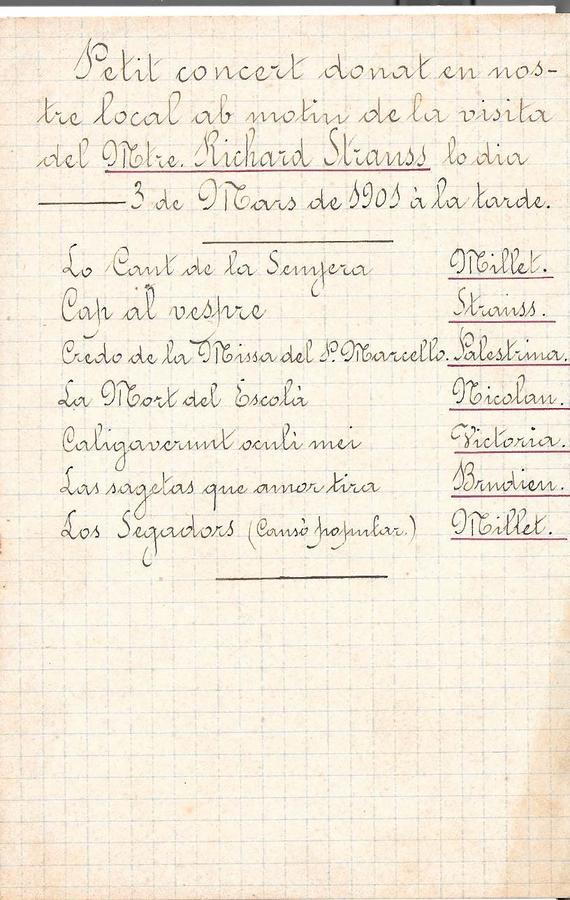 Petit concert donat en nos-
tre local ab motiu de la visita
del Mtre. Richard Strauss lo dia
3 de Mars de 1901 à la tarde.
Lo Cant de la Senyera Millet.
Cap al vespre Strauss.
Credo de la Missa del P. Marcello. Palestrina.
La Mort del Escolà Nicolau.
Caligaverunt oculi mei Victoria.
Las sagetas que amor tira Brudieu.
Los Segadors (Cansò popular.) Millet.